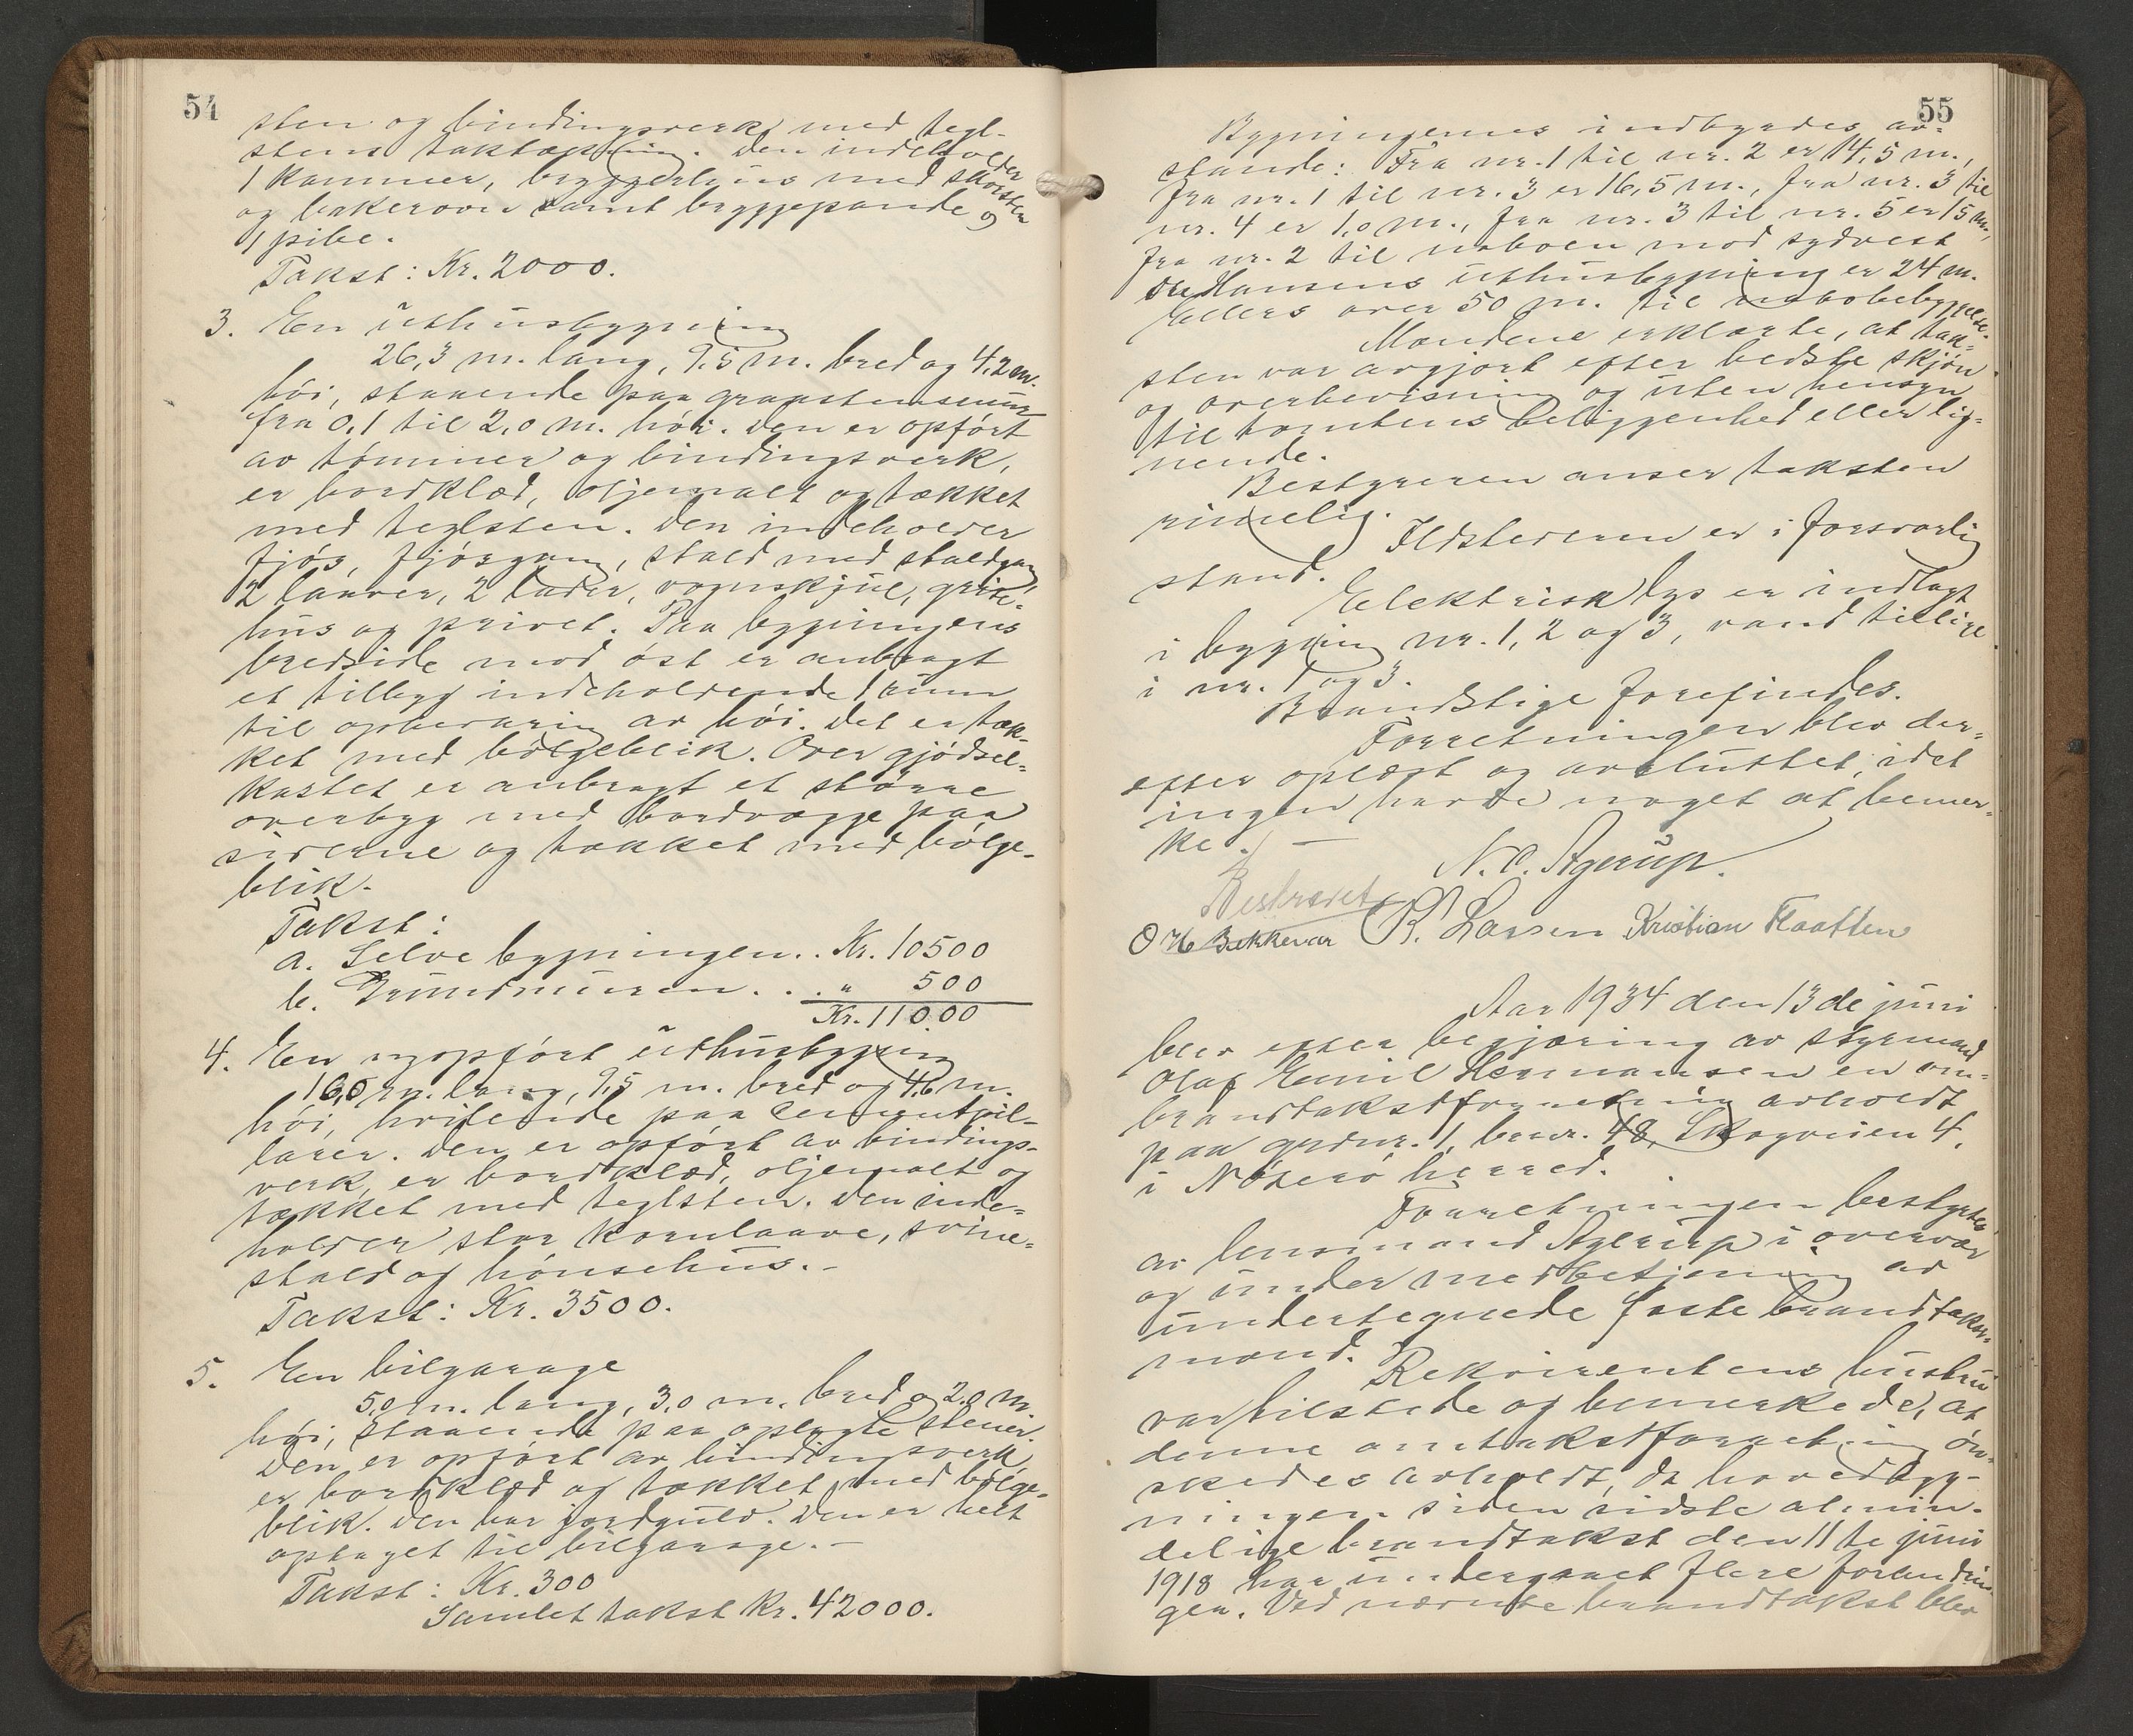 54
sten og bindingsverk med tegl-
stens taktækning. Den indeholder
1 kammer, bryggerhus med skorsten
og bakerovn samt bryggepande og
1 pibe.
Takst: Kr. 2000.
3. En uthusbygning
26,3 m. lang, 9,5 m. bred og 4,2 m.
höi, staaende paa graastensmur
fra 0,1 til 2,0 m. höi. Den er opfört
av tömmer og bindingsverk,
er bordklæd, oljemalt og tækket
med teglsten. Den indeholder
fjös, fjösgang, stald med staldgang,
2 laaver, 2 lader, vognskjul, grise-
hus og privet. Paa bygningens
bredside mod öst er anbragt
et tilbygg indeholdende 1 rum
til opbevaring av höi. Det er tæk-
ket med bölgeblik. Over gjödsel-
kastet er anbragt et större
overbygg med bordvægge paa
siderne og tækket med bölge-
blik.
Takst:
a. Selve bygningen.. Kr. 10500
b. Grundmuren... " 500
Kr. 11000
4. En nyopfört uthusbygning
16,5 m. lang, 9,5 m. bred og 4,6 m.
höi, hvilende paa cementpil-
larer. Den er opfört av bindings-
verk, er bordklæd, oljemalt og
tækket med teglsten. Den inde-
holder stor kornlaave, svine-
stald og hönsehus.-
Takst: Kr. 3500.
5. En bilgarage
5,0 m. lang, 3,0 m. bred og 2,0 m.
höi, staaende paa oplagte stener.
Den er opfört av bindingsverk,
er bordklæd og tækket med bölge-
blik. Den har jordgulv. Den er helt
optaget til bilgarage.-
Takst: Kr. 300
Samlet takst Kr. 42000.
55
Bygningernes indbyrdes av-
stande: Fra nr. 1 til nr. 2 er 14,5 m.,
fra nr. 1 til nr. 3 er 16,5 m., fra nr. 3 til
nr. 4 er 1,0 m., fra nr. 3 til nr. 5 er 15 m.,
fra nr. 2 til naboen mod sydvest
Hansens uthusbygning er 24 m.
Ellers over 50 m. til nabobebyggelse.
Mændene erklærte, at tak-
sten var avgjort efter bedste skjön
og overbevisning og uten hensyn
til tomtens beliggenhed eller lig-
nende.
Bestyreren anser taksten
rimelig.
Ildstederne er i forsvarlig
stand.
Elektrisk lys er indlagt
i bygning nr. 1, 2 og 3, vand tillige
i nr. 1 og 3.
Brandstige forefindes.
Forretningen blev der-
efter oplæst og avsluttet, idet
ingen havde noget at bemer-
ke. -
N. C. Agerup.
Beskrevet
O H Bekkevar R. Larsen Kristian Flaatten
Aar 1934 den 13de juni
blev efter begjæring av styrmand
Olaf Emil Hermansen en om-
brandtakstforretning avholdt
paa grdnr. 1, brnr. 48, Skogveien 4,
i Nöterö herred.
Forretningen bestyrtes
av lensmand Agerup i overvær
og under medbetjening av
undertegnede faste brandtakst-
mænd.
Rekvirentens hustru
var tilstede og bemerkede, at
denne omtakstforretning ön-
skedes avholdt, da hovedbyg-
ningen siden sidste almin-
delige brandtakst den 11te juni
1918 har undergaaet flere forandrin-
ger. Ved nævnte brandtakst blev